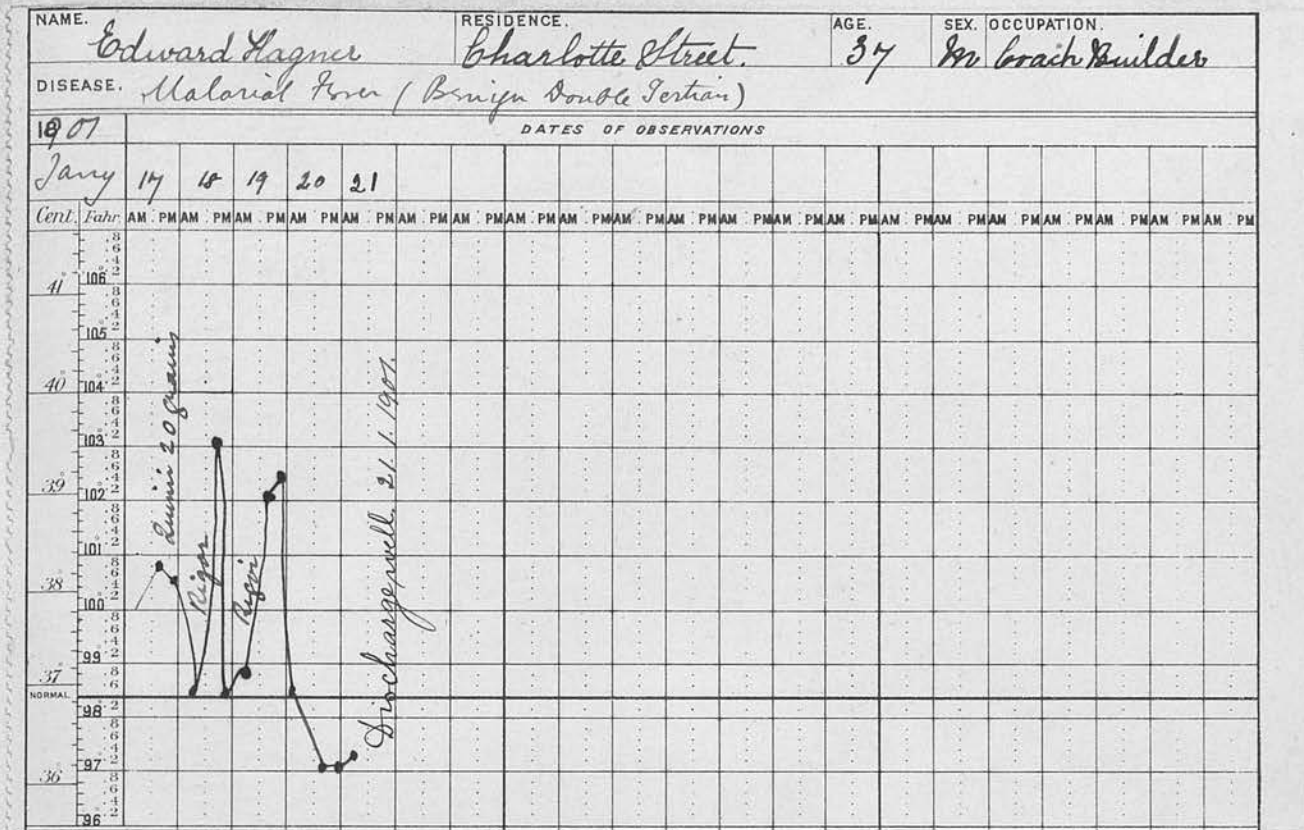 NAME. RESIDENCE. AGE. SEX. OCCUPATION.
Edward Hagner Charlotte Street. 37 M Coach Builder
DISEASE. Malarial Fever (Benign Double Tertian)
1901 DATES OF OBSERVATIONS
Jany 17 18 19 20 21
Cent. Fahr. AM PM AM PM AM PM AM PM AM PM AM PM AM PM AM PM AM PM AM PM AM PM AM PM AM PM AM PM AM PM AM PM AM PM AM PM AM PM AM PM AM PM
41° 106°
105°
40° 104°
103°
39° 102°
101°
38° 100°
99°
37°
NORMAL
98°
97°
36°
96°
Quinin 20 grains
Rigor
Rigor
Discharged well 21.1.1901.